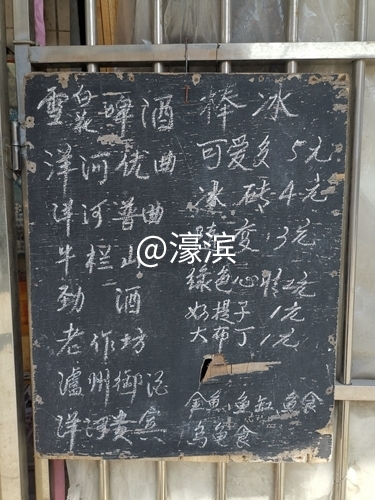 雪花啤酒
洋河优曲
洋河普曲
牛栏山
劲酒
老作坊
瀘州御酒
洋河貴宾
棒冰
可爱多 5元
冰砖 4元
变 3元
绿色心情 2元
奶提子 1元
大布丁 1元
金鱼, 鱼缸 鱼食
乌龟食
@濠滨